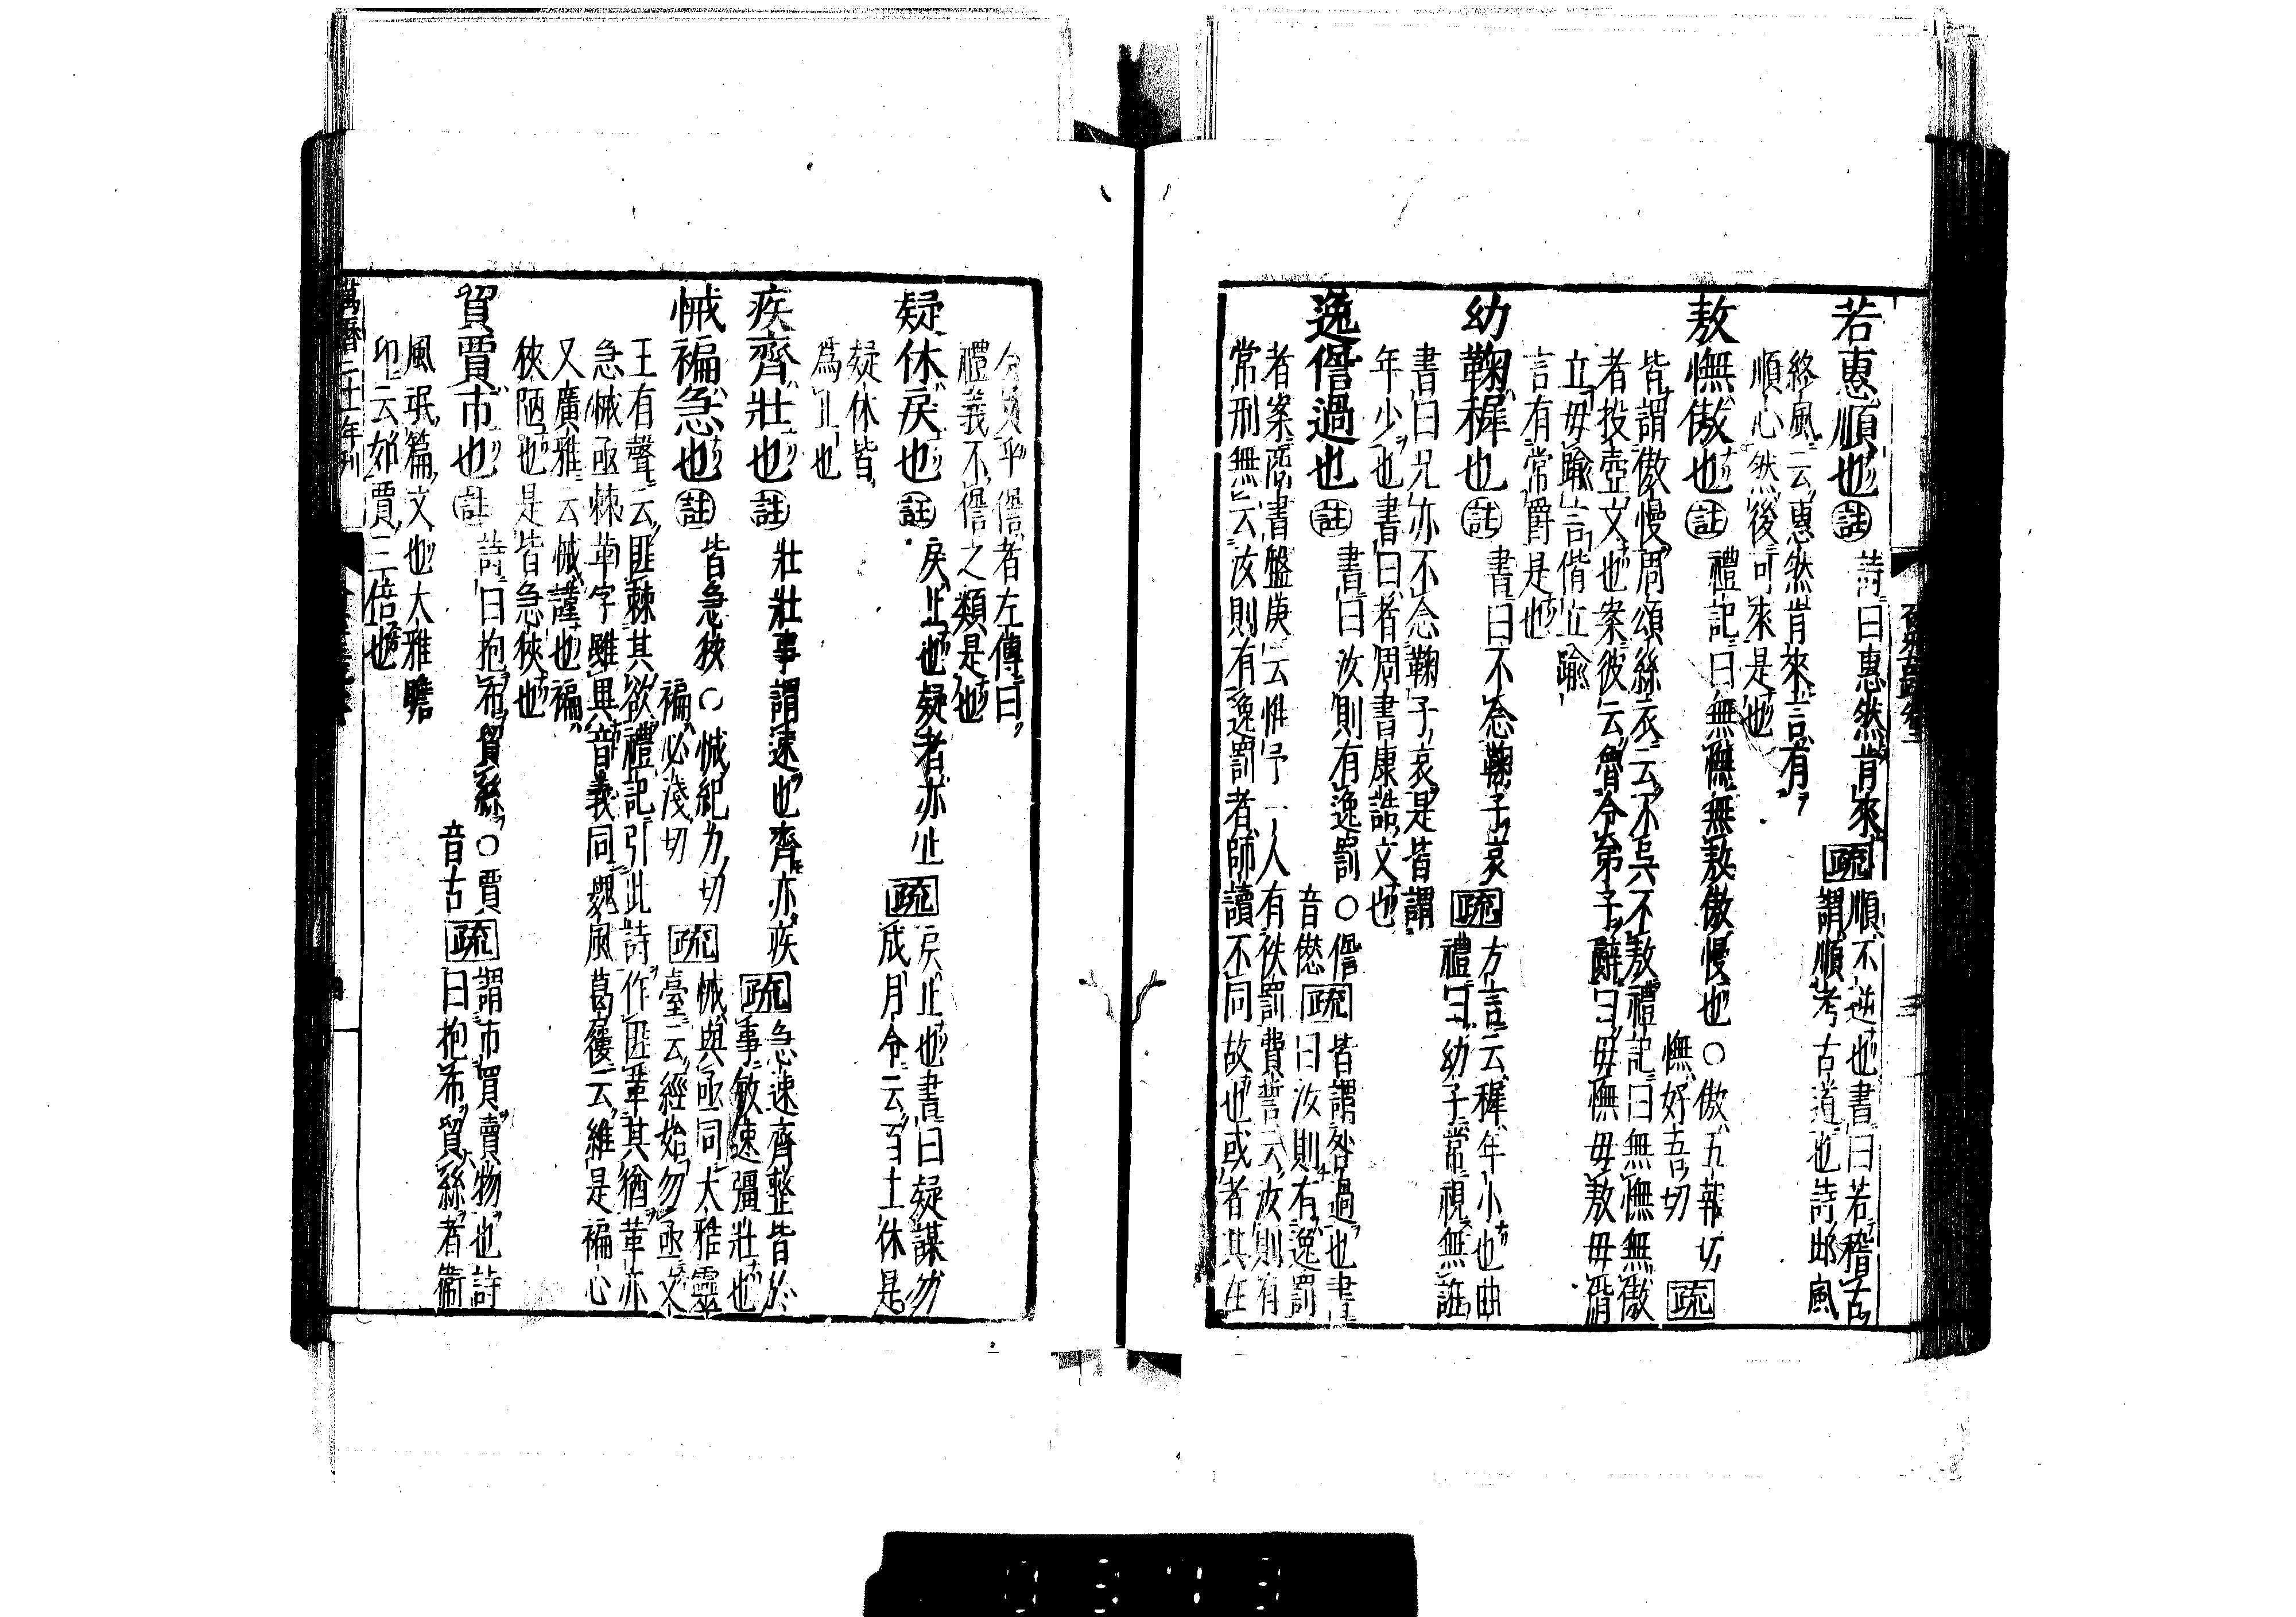 若惠順也註詩曰惠然肯來疏順不逆也書曰若稽古
謂順考古道也詩邶風
終風云惠然肯來言有
順心然後可來是也
敖憮傲也註禮記曰無憮無敖傲慢也〇傲五報切疏
憮好吾切
皆謂傲慢周頌絲衣云不吳不敖禮記曰無憮無傲
者投壺文也案彼云魯令弟子辭曰毋憮毋敖毋偝
立毋踰言偝立踰
言有常爵是也
幼鞠穉也註書曰不念鞠子哀疏方言云穉年小也曲
禮曰幼子常視無誑
書曰兄亦不念鞠子哀是皆謂
年少也書曰者周書康誥文也
逸諐過也註書曰汝則有逸罰〇諐疏皆謂咎過也書
音愆曰汝則有逸罰
者案商書盤庚云惟予一人有佚罰費誓云汝則有
常刑無云汝則有逸罰者師讀不同故也或者其在
今文乎諐者左傳曰
禮義不諐之類是也
疑休戾也註戾止也疑者亦止疏戾止也書曰疑謀勿
成月令云百土休是
疑休皆
爲止也
疾齊壯也註壯壯事謂速也齊亦疾疏急速齊整皆於
事敏速彊壯也
悈褊急也註皆急狹〇悈紀力切疏悈與亟同大雅靈
褊必淺切臺云經始勿亟文
王有聲云匪棘其欲禮記引此詩作匪革其猶革亦
急悈亟棘革字雖異音義同魏風葛屨云維是褊心
又廣雅云悈謹也褊
狹陋也是皆急狹也
貿賈市也註詩曰抱布貿絲〇賈疏謂市買賣物也詩
音古曰抱布貿絲者衞
風氓篇文也大雅瞻
卬云如賈三倍也
萬曆二十一年刊